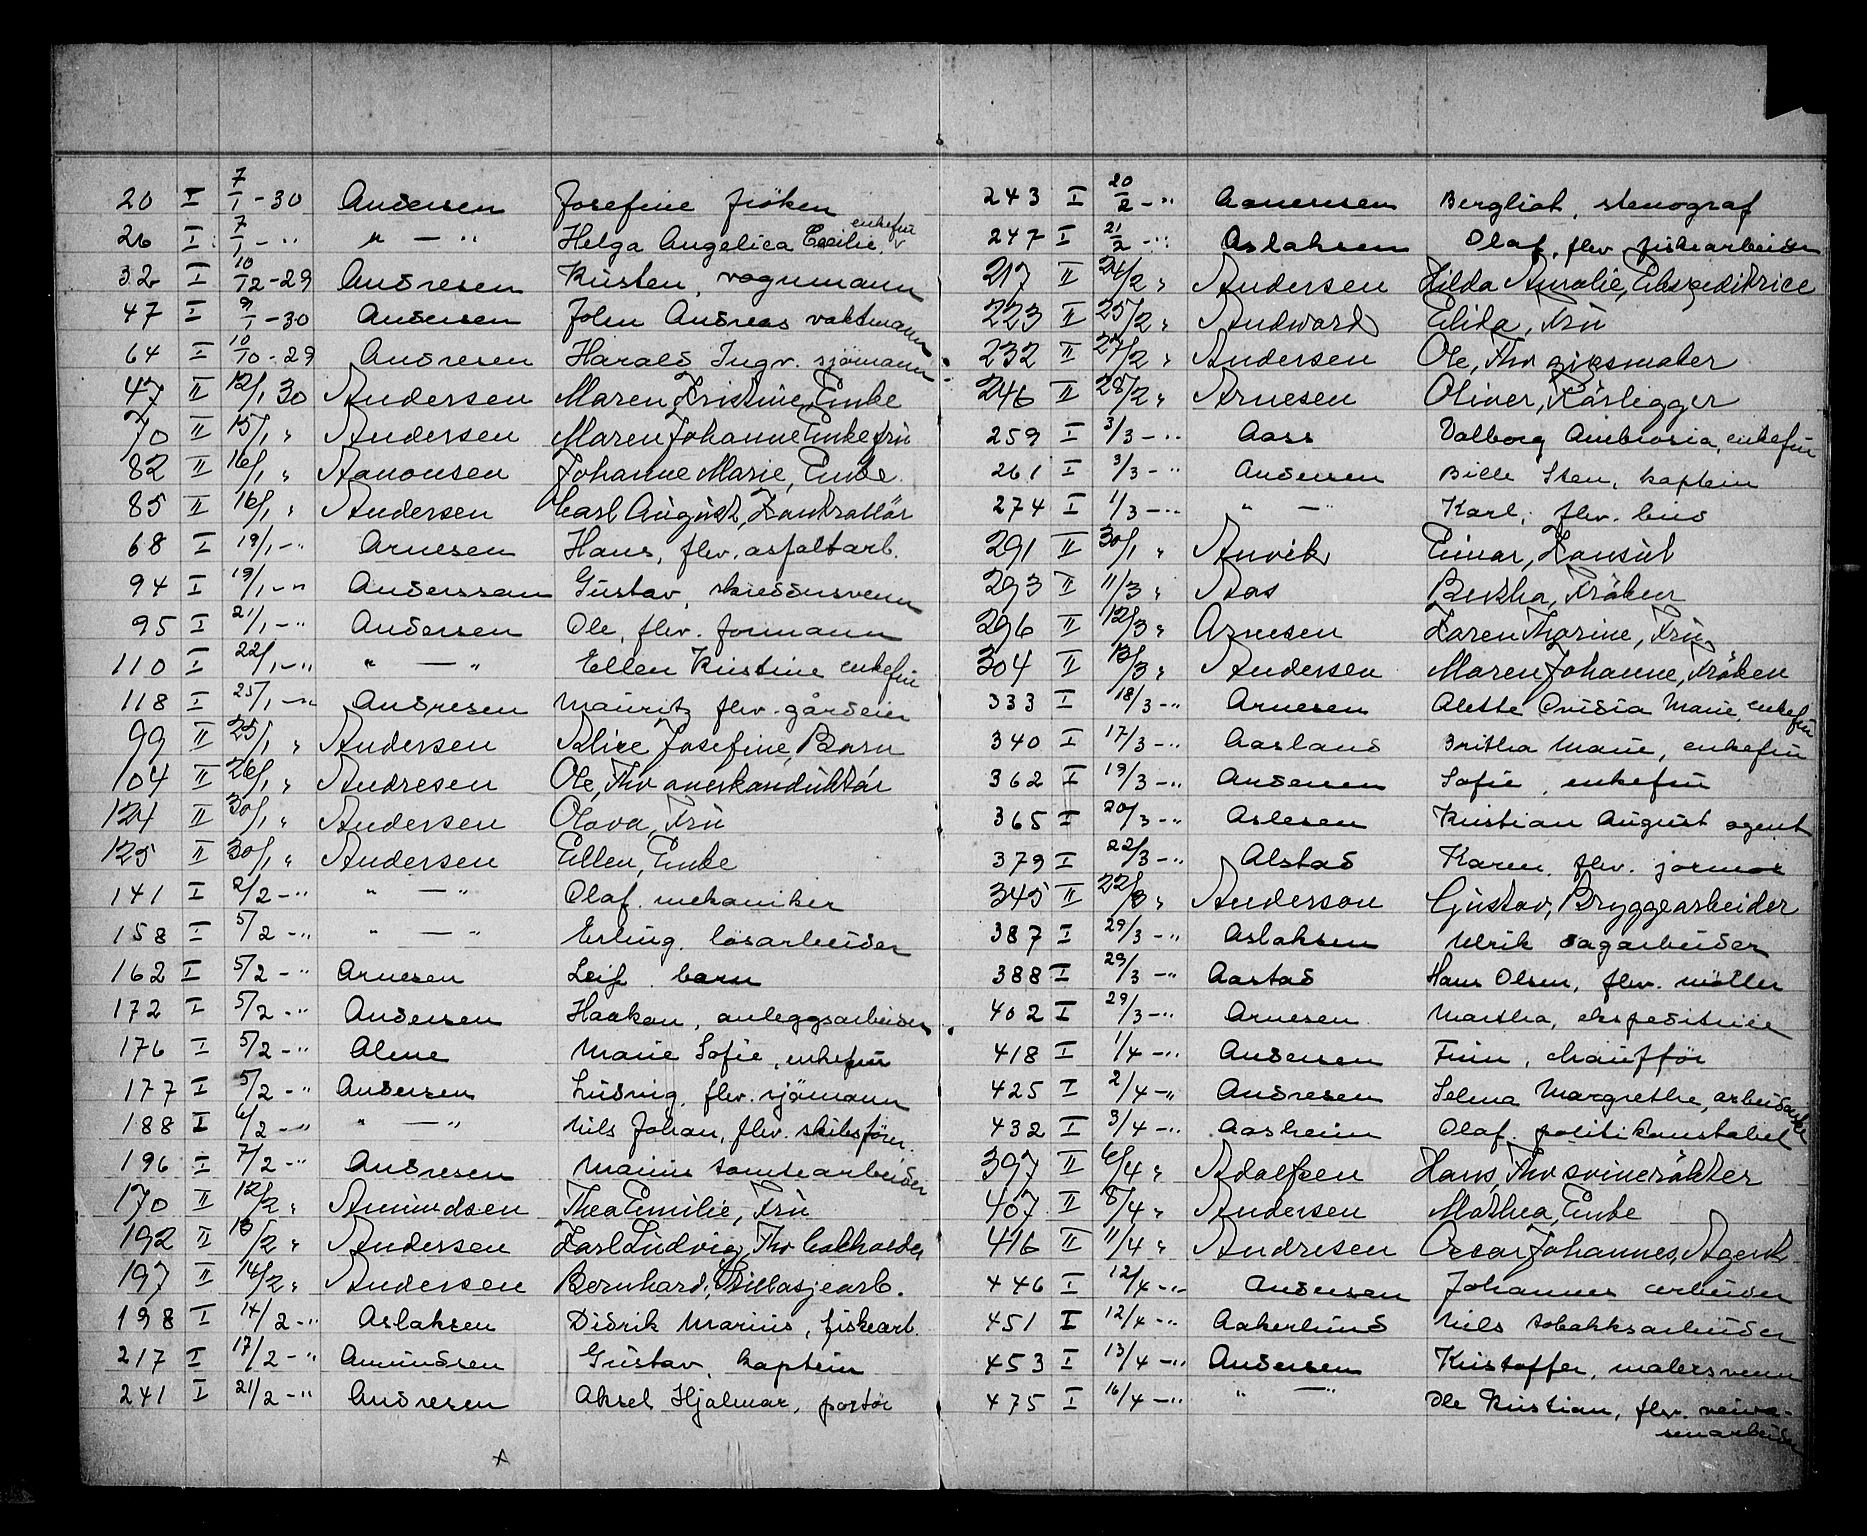 20 I 7/1 - 30 Andersen Josefine fröken
26 I 7/1 - " " — " Helga Angelica Cecilie, enkefru
32 I 10/12 - 29 Andresen Kristen, vognmann
47 I 9/1 - 30 Andersen John Andreas vaktmann
64 I 10/10 - 29 Andresen Harald Ingv. sjömann
47 II 12/1 30 Andersen Maren Kristine, Enke
70 II 15/1 " Andersen Maren Johanne Enkefru
82 II 16/1 " Aanonsen Johanne Marie, Enke
85 II 16/1 " Andersen Carl August, Kontrollör
68 I 19/1 - " Arnesen Hans, flv. asfaltarb.
94 I 19/1 - " Anderssen Gustav, skreddersvenn
95 I 21/1 - " Andersen Ole, flv. formann
110 I 22/1 - " " — " Ellen Kristine enkefru
118 I 25/1 - " Andresen Mauritz flv. gårdeier
99 II 25/1 " Andersen Alice Josefine, Barn
104 II 26/1 " Andresen Ole, Fhv overkonduktör
124 II 30/1 " Andersen Olava, Fru
125 II 30/1 " Andersen Ellen, Enke
141 I 2/2 - " " — " Olaf mekaniker
158 I 5/2 - " " — " Erling. lösarbeider
162 I 5/2 - " Arnesen Leif barn
172 I 5/2 - " Andersen Haakon, anleggsarbeider
176 I 5/2 - " Alme Marie Sofie, enkefru
177 I 5/2 - " Andersen Ludvig, flv. sjömann
188 I 6/2 - " " — " Nils Johan, flv. skibsförer.
196 I 7/2 - " Andresen Marius tomtearbeider
170 II 12/2 " Amundsen Thea Emilie, Fru
192 II 13/2 " Andersen Karl Ludvig, Fhv
197 II 14/2 " Andersen Bernhard,
198 I 14/2 - " Aslaksen Didrik Marius, fiskearb.
217 I 17/2 - " Amundsen Gustav, kaptein
241 I 21/2 - " Andresen Aksel Hjalmar, portör
243 I 20/2 - " Aanensen Bergliot, stenograf
247 I 21/2 - " Aslaksen Olaf, flv. fiskearbeider
217 II 24/2 " Andersen Hilda Amalie, Ekspeditrice
223 II 25/2 " Andward Elida, Fru
232 II 27/2 " Andersen Ole, Fhv gipsmaker
246 II 28/2 " Arnesen Oliver, Rörlegger
259 I 3/3 - " Aass Valborg Ambrosia, enkefru
261 I 3/3 - " Andersen Bille Sten, kaptein
274 I 1/3 - " " — " Karl, flv. bud
291 II 30/1 " Anvik Einar, Konsul
293 II 11/3 " Aas Bertha, Fröken
296 II 12/3 " Arnesen Karen Thorine, Fru
304 II 13/3 " Andersen Maren Johanne, Fröken
333 I 18/3 - " Arnesen Alette Ovidia Marie, enkefru
340 I 17/3 - " Aasland Britha Marie, enkefru
362 I 19/3 - " Andersen Sofie, enkefru
365 I 20/3 - " Aslesen Kristian August agent
379 I 22/3 - " Alstad Karen, flv. jormor
345 II 22/3 " Anderson Gustav, Bryggearbeider
387 I 29/3 - " Aslaksen Ulrik sagarbeider
388 I 29/3 - " Aastad Hans Olsen, flv. möller
402 I 29/3 - " Arnesen Martha, ekspeditrice
418 I 1/4 - " Andersen Finn, chaufför
425 I 2/4 - " Andresen Selma Margrethe,
432 I 3/4 - " Aasheim Olaf, politikonstabel
397 II 6/4 " Adolfsen Hans, Fhv svinerökter
407 II 8/4 " Andersen Mathea, Enke
416 II 11/4 " Andresen Oscar Johannes, Agent
446 I 12/4 - " Andersen Johannes arbeider
451 I 12/4 - " Aakerlund Nils tobakksarbeider
453 I 13/4 - " Andersen Kristoffer, malersvenn
475 I 16/4 - " " — " Ole Kristian, flv. veive-
senarbeider